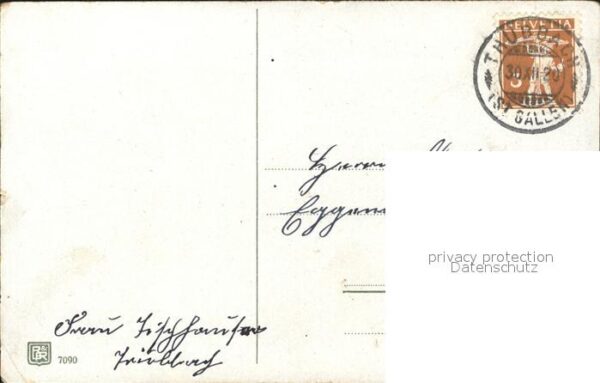 HELVETIA
TRÜBBACH
30.XII.20
(ST. GALLEN)
Herrn
Eggen
privacy protection
Datenschutz
Frau Tischhauser
Trübbach
7090